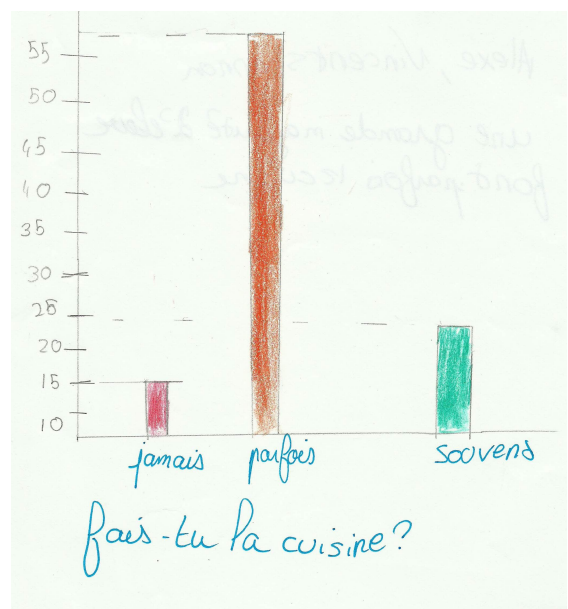 55
50
45
40
35
30
25
20
15
10
jamais parfois souvent
fais-tu la cuisine?